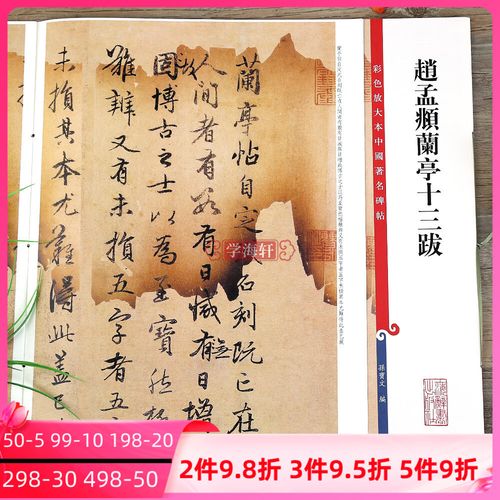 趙孟頫蘭亭十三跋
彩色放大本中國著名碑帖
孫寶文 編
蘭亭帖自定武石刻既亡在
人間者有數有日減無日增
故博古之士以為至寶然極
難辨又有未損五字者五
未損其本尤難得此蓋已
学海轩
50-5 99-10 198-20
298-30 498-50
2件9.8折 3件9.5折 5件9折